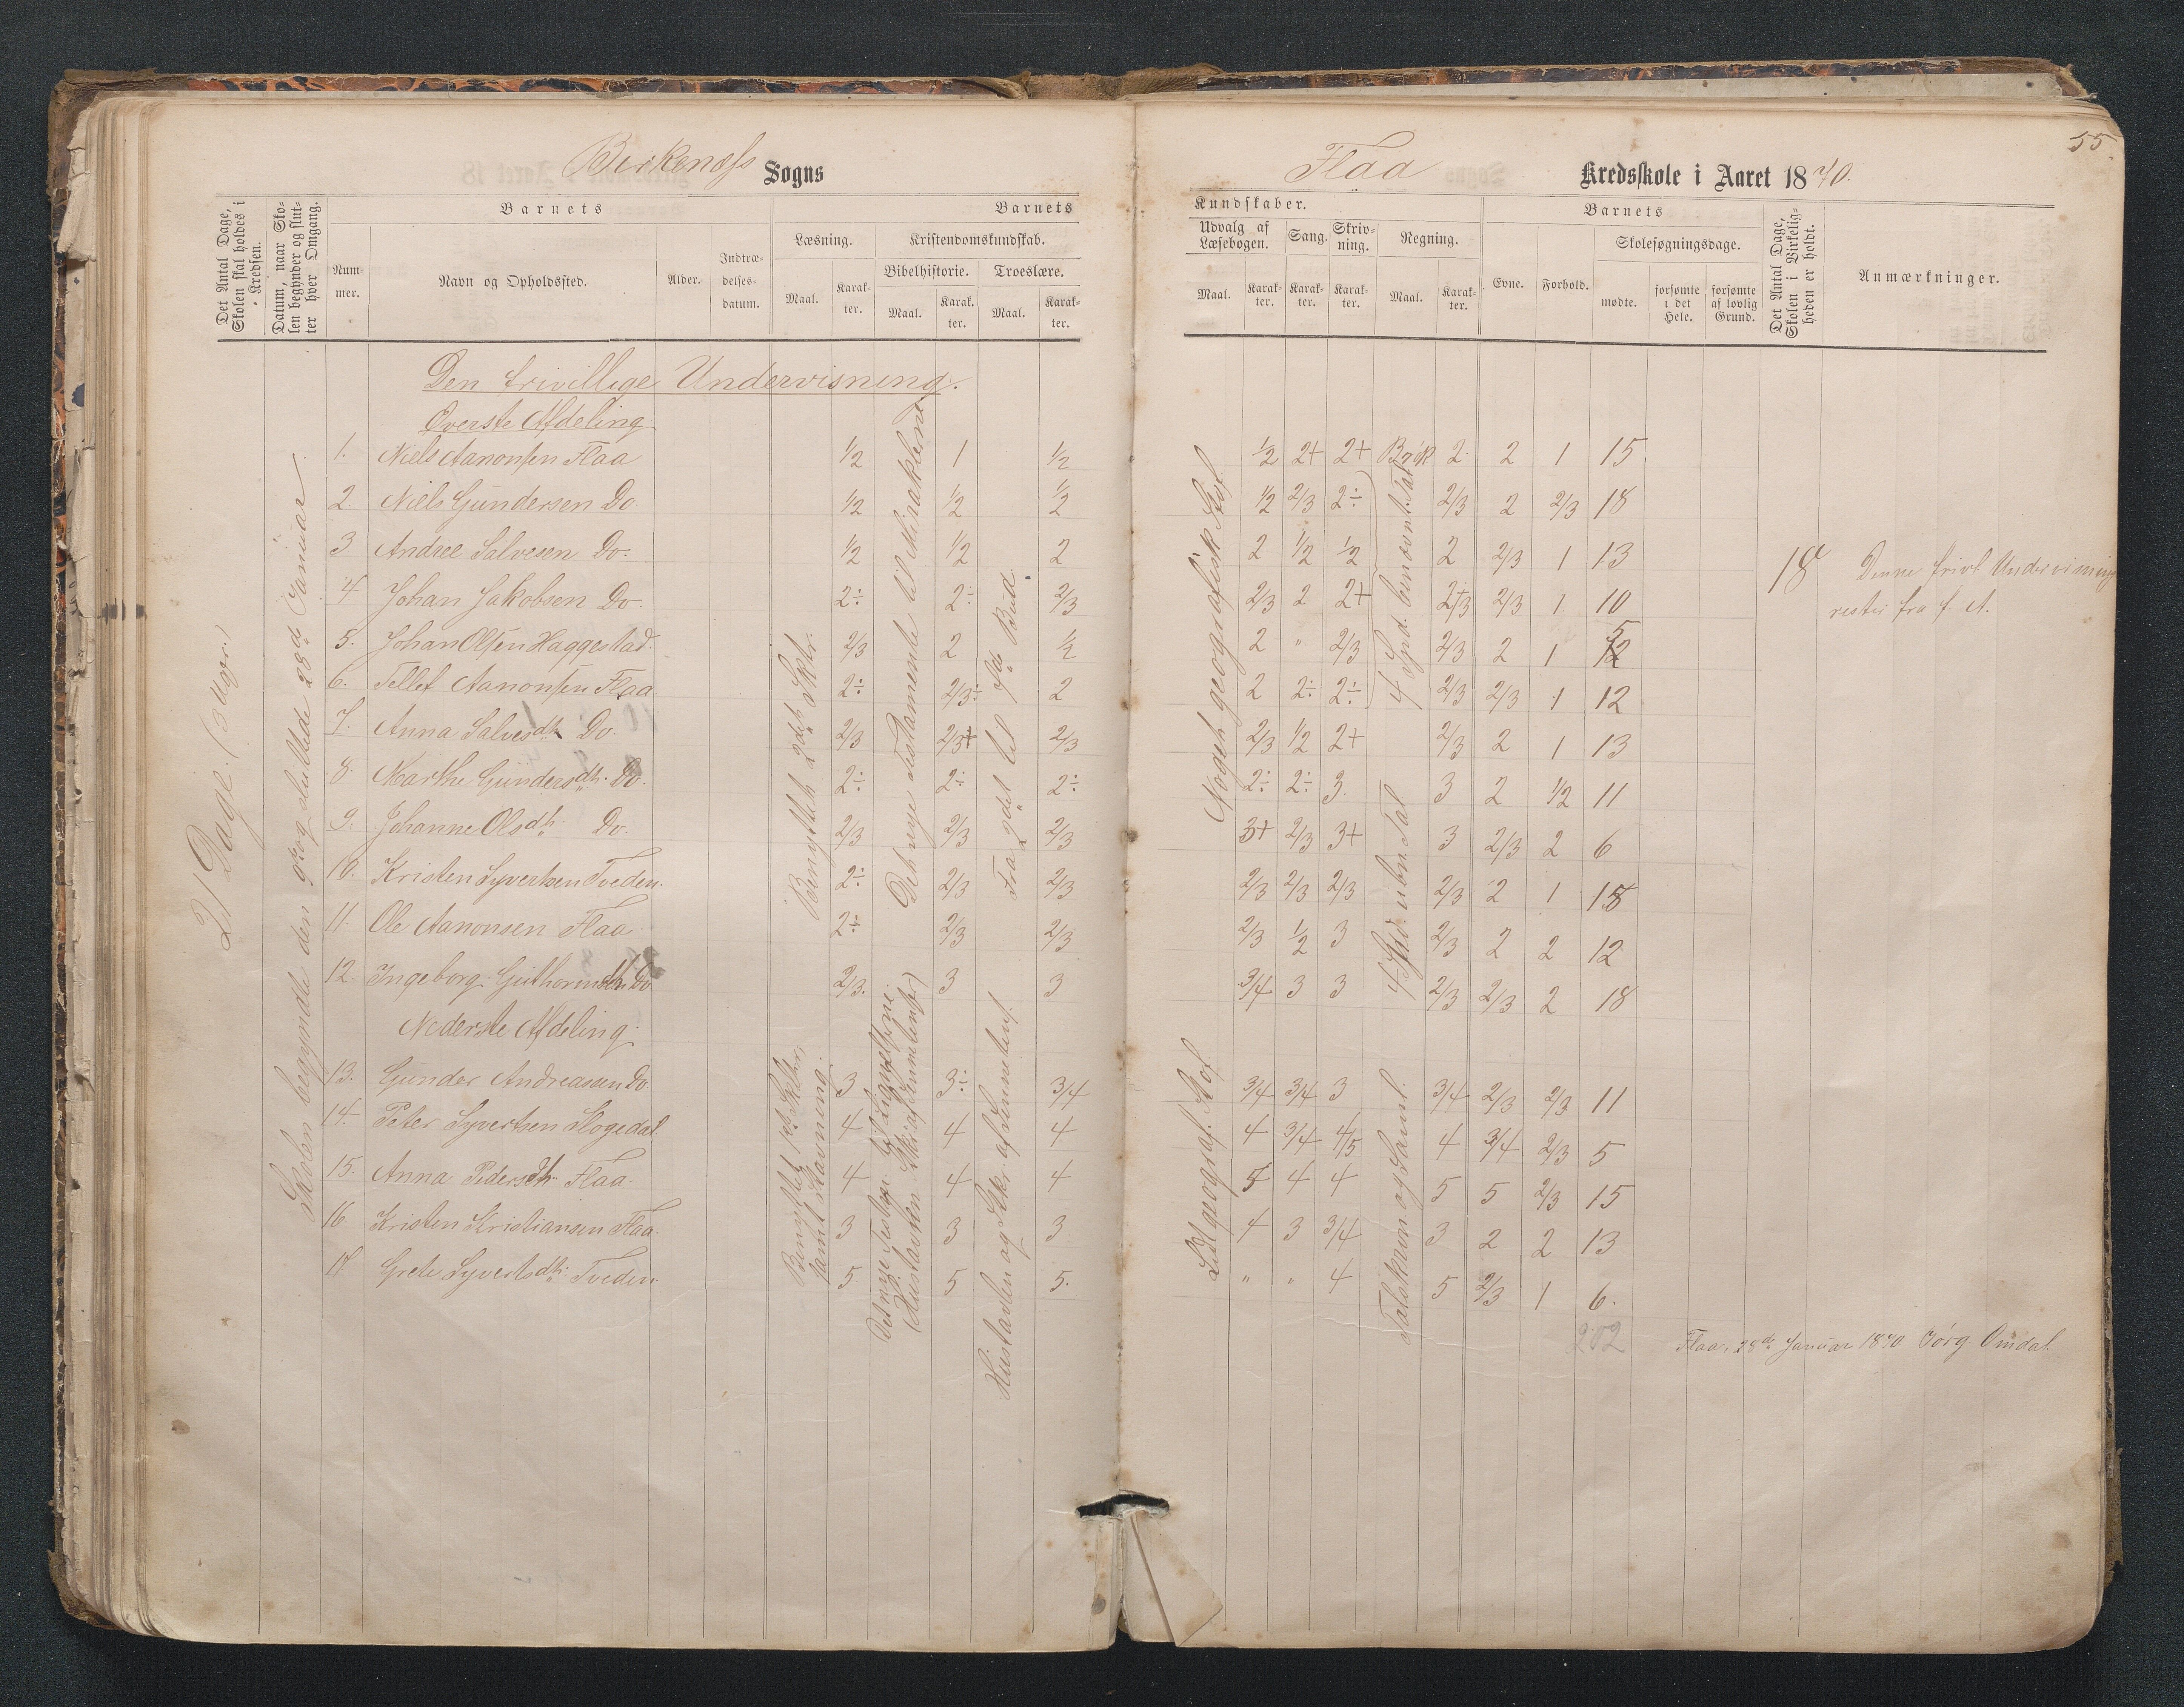 55.
Birkenæss Sogns
Flaa Kredsskole i Aaret 1870.
Det Antal Dage, Skolen skal holdes i Kredsen.
Datum, naar Skolen begynder og slutter hver Omgang.
Barnets
Nummer.
Navn og Opholdssted.
Alder.
Indtrædelsesdatum.
Barnets
Læsning.
Kristendomskundskab.
Maal.
Karakter.
Bibelhistorie.
Troeslære.
Maal.
Karakter.
Maal.
Karakter.
Kundskaber.
Udvalg af Læsebogen.
Sang.
Skrivning.
Regning.
Maal.
Karakter.
Karakter.
Karakter.
Maal.
Karakter.
Barnets
Evne.
Forhold.
Skolesøgningsdage.
mødte.
forsømte i det Hele.
forsømte af lovlig Grund.
Det Antal Dage, Skolen i Virkeligheden er holdt.
Anmærkninger.
21 Dage. (3 Uger.)
Skolen begyndte den 9de og sluttede 28de Januar.
Den frivillige Undervisning.
Øverste Afdeling
1. Niels Aanonsen Flaa 1/2 1 1/2 1/2 2+ 2+ Brøk 2 2 1 15.
2. Niels Gundersen Do. 1/2 1/2 1/2 1/2 2/3 2÷ 2/3 2 2/3 18
3 Andree Salvesen Do. 1/2 1/2 2 2 1/2 1/2 2 2/3 1 13
4 Johan Jakobsen Do. 2÷ 2÷ 2/3 2/3 2 2+ 2/3 2/3 1 10
5. Johan Olsen Haggestad. 2/3 2 1/2 2 " 2/3 2/3 2 1 12
6. Tellef Aanonsen Flaa 2÷ 2/3÷ 2 2 2÷ 2÷ 2/3 2/3 1 12
7. Anna Salvesdtr Do. 2/3 2/3+ 2/3 2/3 1/2 2+ 2/3 2 1 13
8. Marthe Gundersdtr. Do. 2÷ 2÷ 2÷ 2÷ 2÷ 3. 3 2 1/2 11
9. Johanne Olsdtr. Do. 2/3 2/3 2/3 3+ 2/3 3+ 3 2/3 2 6
10. Kristen Syvertsen Tveden. 2÷ 2/3 2/3 2/3 2/3 2/3 2/3 2 1 18
11. Ole Aanonsen Flaa 2÷ 2/3 2/3 2/3 1/2 3 2/3 2 2 12
12. Ingeborg Guthormsdtr Do 2/3. 3 3 3/4 3 3 2/3 2/3 2 18
Nederste Afdeling.
13. Gunder Andreasen Do. 3 3÷ 3/4 3/4 3/4 3 3/4 2/3 2/3 11
14. Peter Syvertsen Hogedal. 4 4 4 4 3/4 4/5 4 3/4 2/3 5
15. Anna Pedersdtr Flaa. 4 4 4 5 4 4 5 5 2/3 15
16. Kristen Kristiansen Flaa. 3 3 3 4 3 3/4 3 2 2 13
17 Grete Syvertsdtr. Tveden. 5 5 5. " " 4 5 2/3 1 6.
Benyttet 2det Skttr.
Det nye Testamente til Miraklerne
Fra 2det til 7de Bud.
Noget geografisk Stof.
4 Spd. benævnt Tal
4 Spd. ubn. Tal.
Benyttet 1ste Skttr. samt Stavning.
Det nye Testm. til Lignelserne.
(Hustavlen Skr. af Hunmbensf.)
Hustavlen og Skr. af
Lidt geograf. Stof.
Talskrivn. og Saml.
18 Denne frivl. Undervisning
rester fra f. A.
202
Flaa, 28de Januar 1870. Jörg. Omdal.